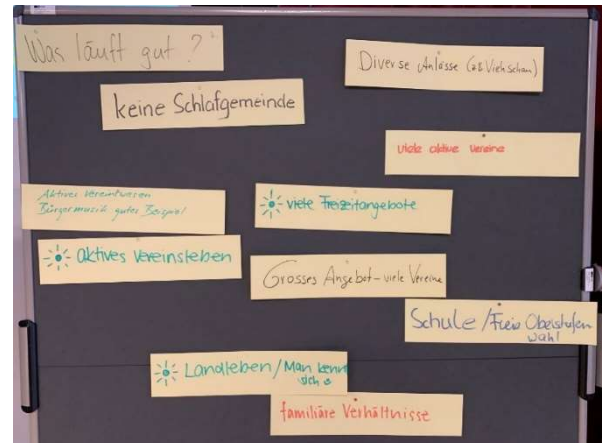 Was läuft gut?
Diverse Anlässe (zB Viehschau)
keine Schlafgemeinde
viele aktive Vereine
Aktives Vereinswesen
Bürgermusik gutes Beispiel
viele Freizeitangebote
aktives Vereinsleben
Grosses Angebot - viele Vereine
Schule / Freie Oberstufen
wahl
Landleben / Man kennt
sich
familiäre Verhältnisse